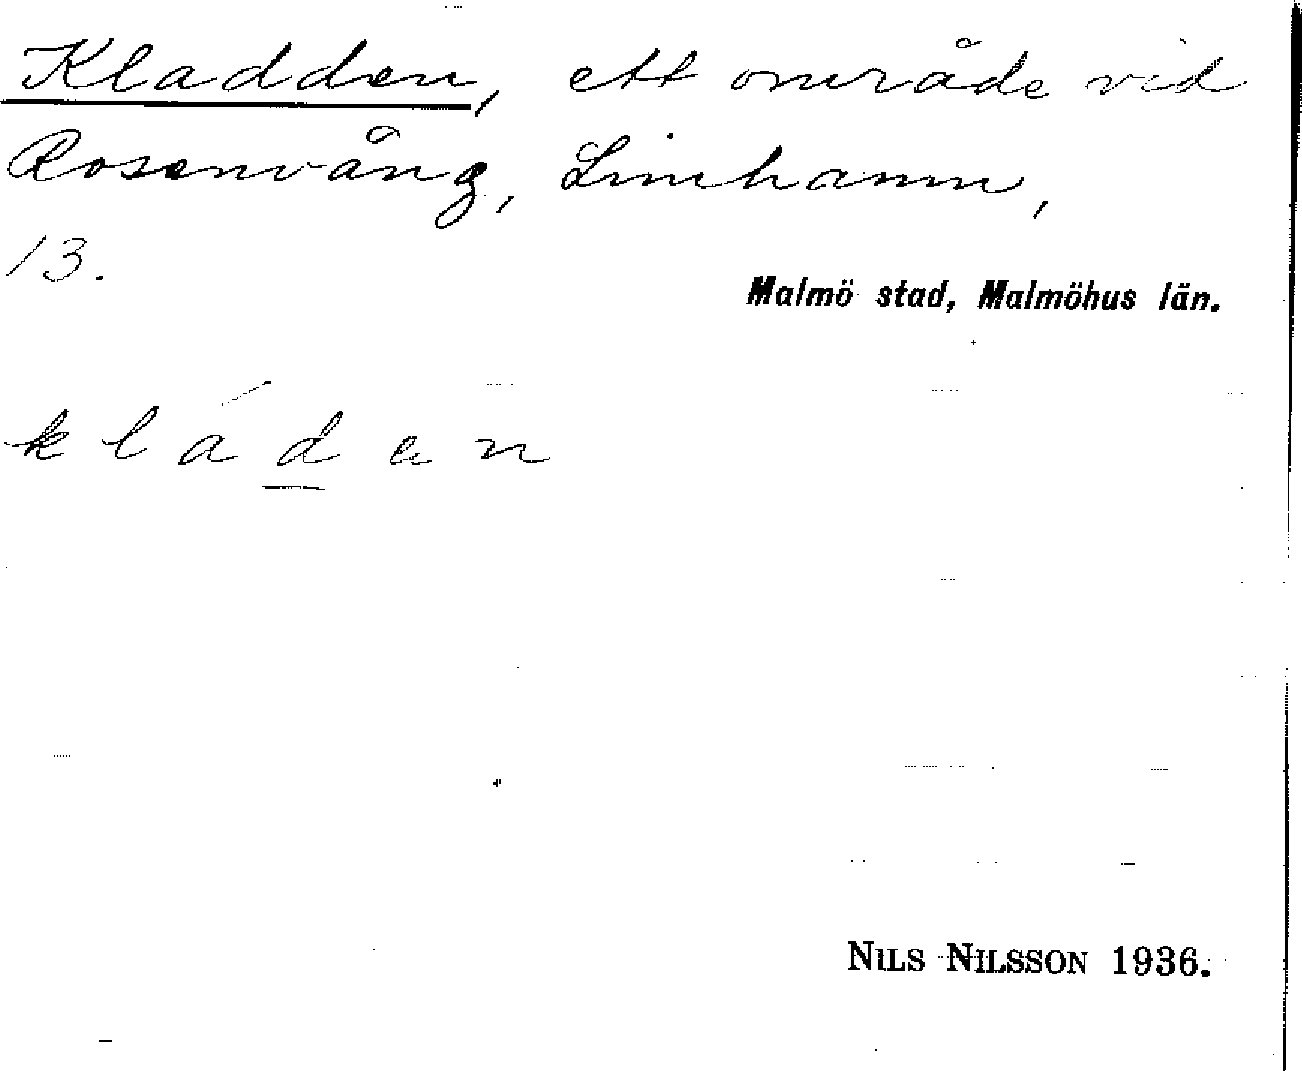 Kladden, ett område vid
Rosenvång, Limhamn,
13.
Malmö stad, Malmöhus län.
kláden
NILS NILSSON 1936.